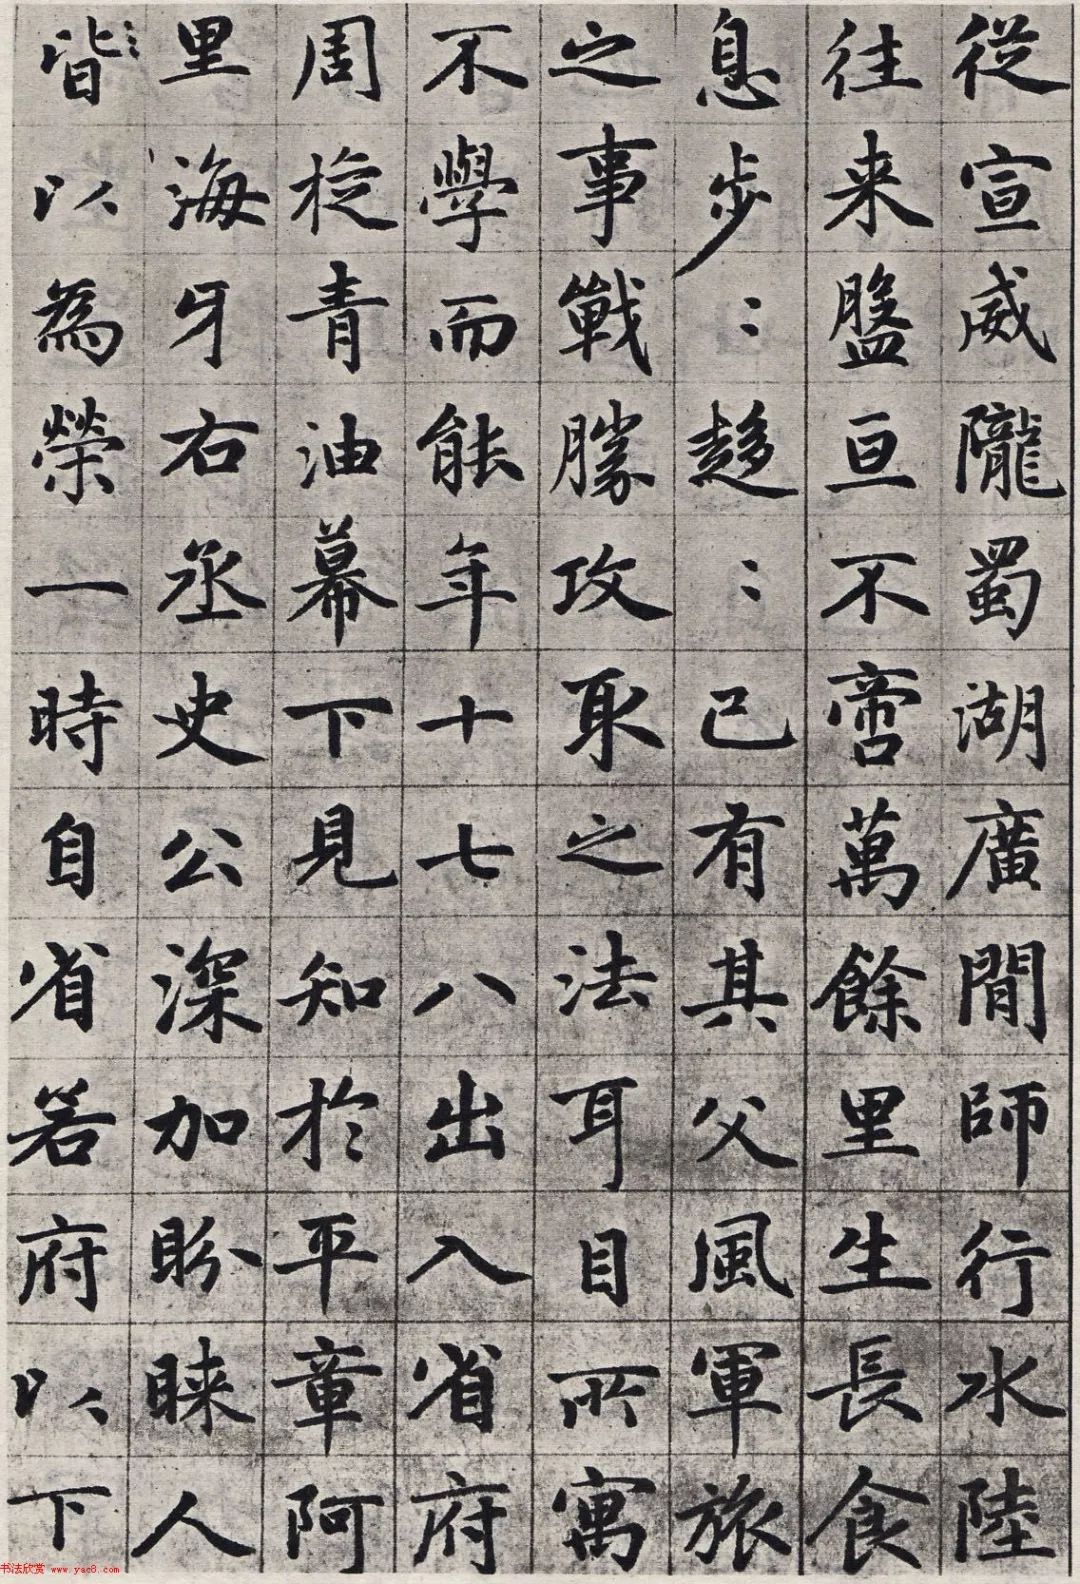 從宣威隴蜀湖廣間師行水陸
往来盤亘不啻萬餘里生長食
息步〻趍〻已有其父風軍旅
之事戰勝攻取之法耳目所寓
不學而能年十七八出入省府
周從青油幕下見知於平章阿
里海牙右丞史公深加盼睞人
皆以為榮一時自省若府以下
书法欣赏 www.yac8.com